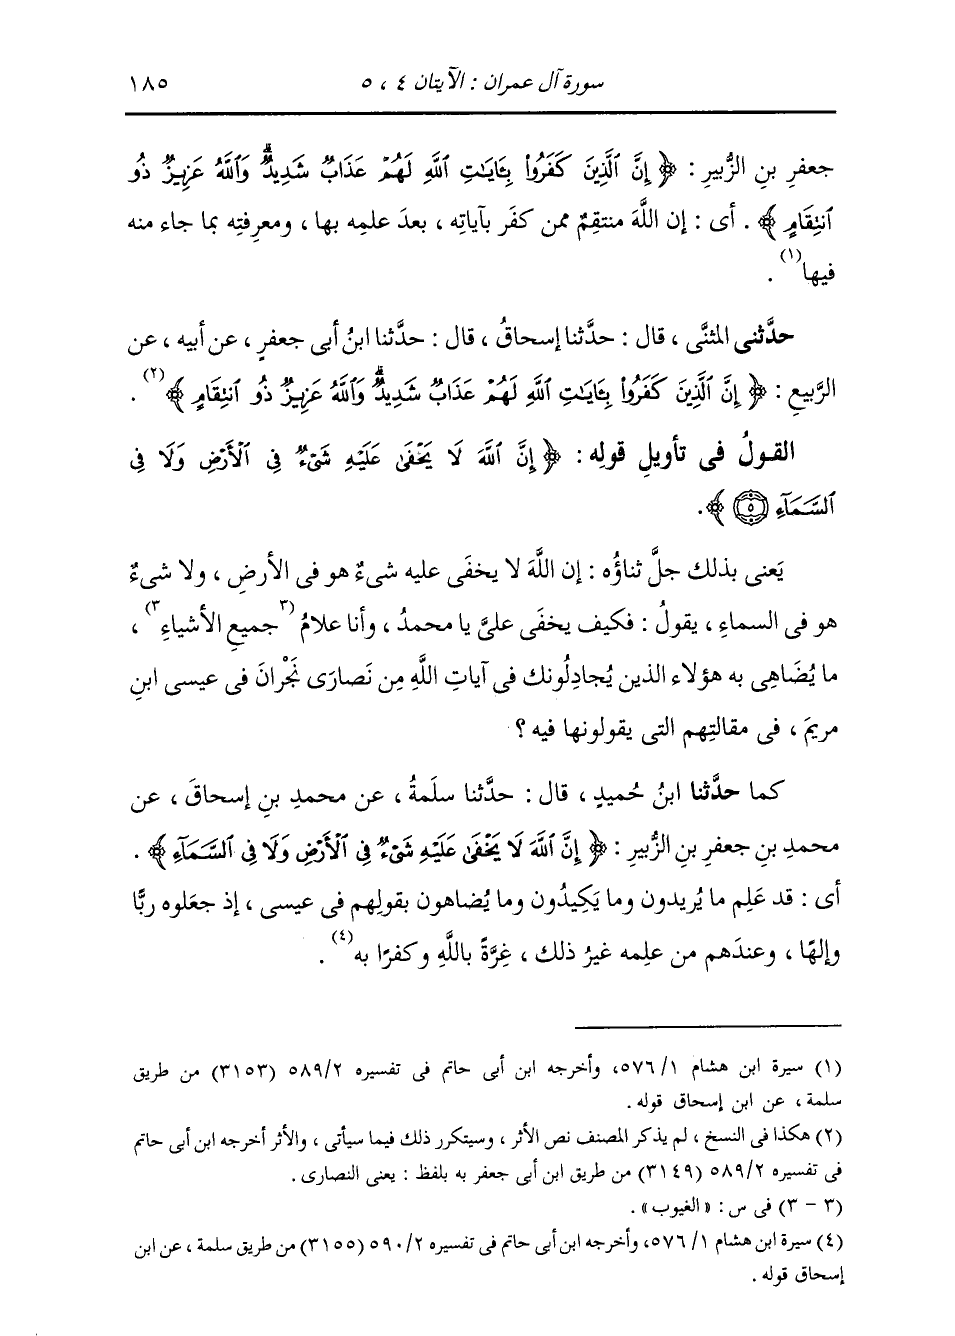 سورة آل عمران : الآيتان ٤ ، ٥ ١٨٥
جعفرِ بنِ الزُّبيرِ : ﴿ إِنَّ ٱلَّذِينَ كَفَرُواْ بِـَٔايَـٰتِ ٱللَّهِ لَهُمْ عَذَابٌ شَدِيدٌۗ وَٱللَّهُ عَزِيزٌ ذُو
ٱنتِقَامٍ ﴾ . أى : إن اللَّهَ منتقِمٌ ممن كفَر بآياتِه ، بعدَ علمِه بها ، ومعرفتِه بما جاء منه
فيها(١) .
حدَّثنى المثنَّى ، قال : حدَّثنا إسحاقُ ، قال : حدَّثنا ابنُ أبى جعفرٍ ، عن أبيه ، عن
الرَّبيعِ : ﴿ إِنَّ ٱلَّذِينَ كَفَرُواْ بِـَٔايَـٰتِ ٱللَّهِ لَهُمْ عَذَابٌ شَدِيدٌۗ وَٱللَّهُ عَزِيزٌ ذُو ٱنتِقَامٍ ﴾(٢) .
القولُ فى تأويلِ قولِه : ﴿ إِنَّ ٱللَّهَ لَا يَخْفَىٰ عَلَيْهِ شَىْءٌ فِى ٱلْأَرْضِ وَلَا فِى
ٱلسَّمَآءِ ٥ ﴾ .
يَعنى بذلك جلَّ ثناؤُه : إن اللَّهَ لا يخفَى عليه شىءٌ هو فى الأرضِ ، ولا شىءٌ
هو فى السماءِ ، يقولُ : فكيف يخفَى علىَّ يا محمدُ ، وأنا علامُ (٣جميعِ الأشياءِ٣) ،
ما يُضَاهِى به هؤلاء الذين يُجادِلُونك فى آياتِ اللَّهِ مِن نَصارَى نَجْرانَ فى عيسى ابنِ
مريمَ ، فى مقالتِهم التى يقولونها فيه ؟
كما حدَّثنا ابنُ حُميدٍ ، قال : حدَّثنا سلَمةُ ، عن محمدِ بنِ إسحاقَ ، عن
محمدِ بنِ جعفرِ بنِ الزُّبيرِ : ﴿ إِنَّ ٱللَّهَ لَا يَخْفَىٰ عَلَيْهِ شَىْءٌ فِى ٱلْأَرْضِ وَلَا فِى ٱلسَّمَآءِ ﴾ .
أى : قد عَلِم ما يُريدون وما يَكِيدُون وما يُضاهون بقولِهم فى عيسى ، إذ جعَلوه ربًّا
وإلهًا ، وعندَهم من علِمه غيرُ ذلك ، غِرَّةً باللَّهِ وكفرًا به(٤) .
(١) سيرة ابن هشام ١/ ٥٧٦، وأخرجه ابن أبى حاتم فى تفسيره ٥٨٩/٢ (٣١٥٣) من طريق
سلمة ، عن ابن إسحاق قوله .
(٢) هكذا فى النسخ ، لم يذكر المصنف نص الأثر ، وسيتكرر ذلك فيما سيأتى ، والأثر أخرجه ابن أبى حاتم
فى تفسيره ٥٨٩/٢ (٣١٤٩) من طريق ابن أبى جعفر به بلفظ : يعنى النصارى .
(٣ - ٣) فى س : « الغيوب » .
(٤) سيرة ابن هشام ١/ ٥٧٦، وأخرجه ابن أبى حاتم فى تفسيره ٥٩٠/٢ (٣١٥٥) من طريق سلمة ، عن ابن
إسحاق قوله .